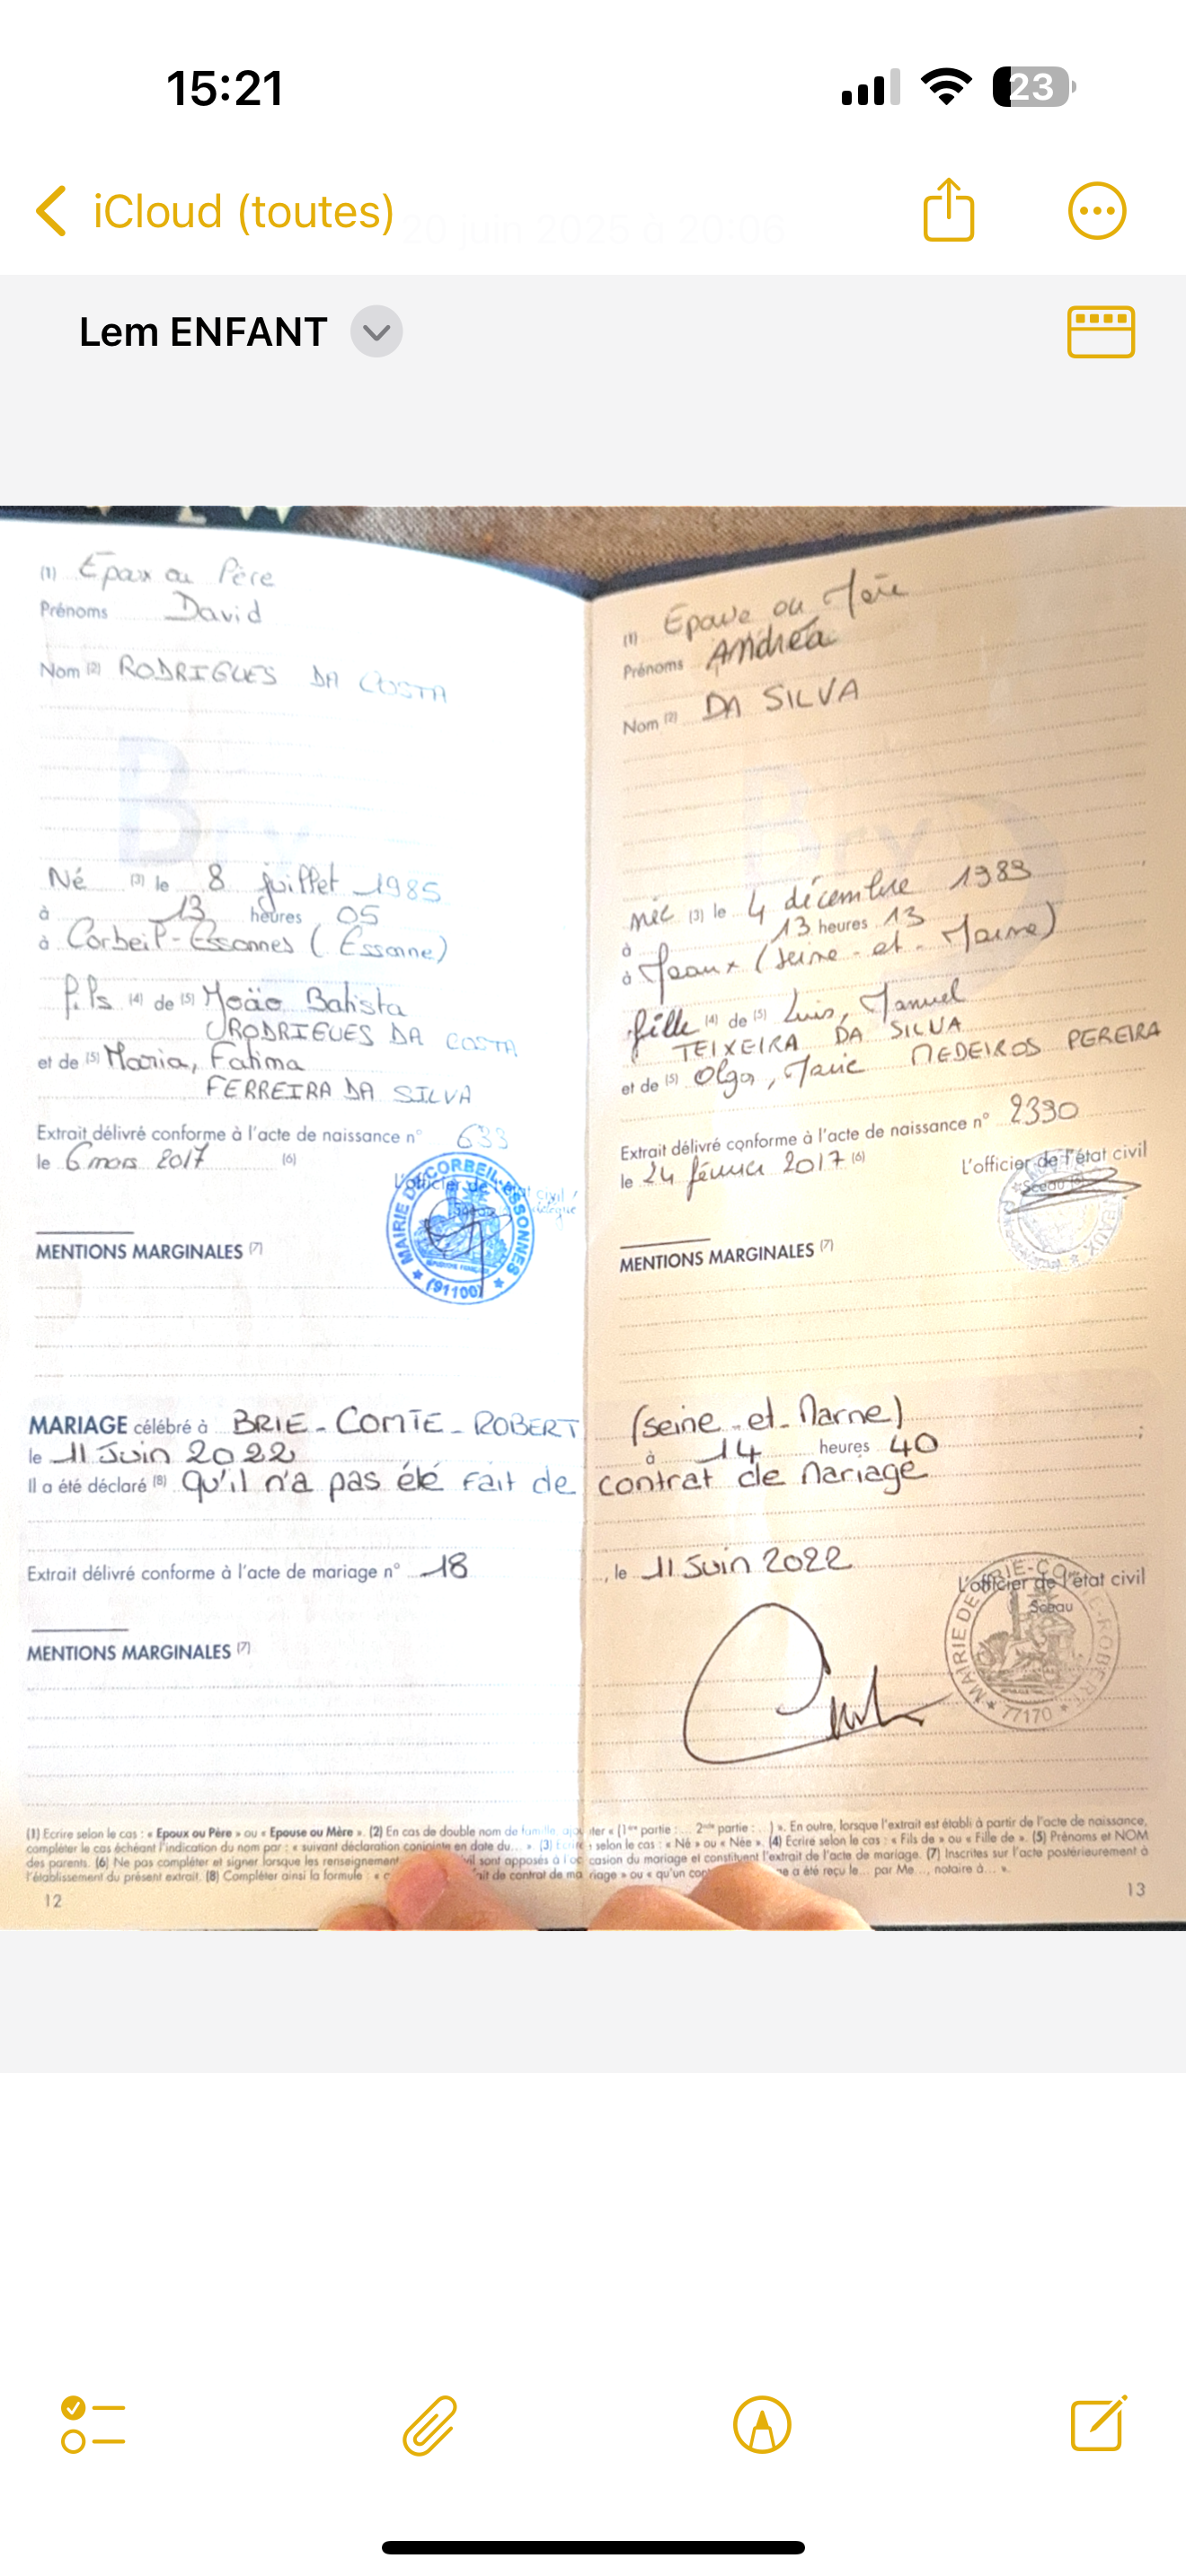 15:21
23
iCloud (toutes)
20 juin 2025 à 20:06
Lem ENFANT
(1) Epoux ou Père
Prénoms David
Nom (2) RODRIGUES DA COSTA
Bry
Né (3) le 8 juillet 1985
à 13 heures 05
à Corbeil-Essonnes (Essonne)
fils (4) de (5) Joäo Batista
RODRIGUES DA COSTA
et de (5) Maria, Fatima
FERREIRA DA SILVA
Extrait délivré conforme à l'acte de naissance n° 633
le 6 mars 2017 (6)
L'officier de l'état civil
délégué
MAIRIE DE CORBEIL-ESSONNES
(91100)
MENTIONS MARGINALES (7)
(1) Epouse ou Mère
Prénoms Andréa
Nom (2) DA SILVA
Bry
née (3) le 4 décembre 1989
à 13 heures 13
à Meaux (Seine-et-Marne)
fille (4) de (5) Luis, Manuel
TEIXEIRA DA SILVA
et de (5) Olga, Marie MEDEIROS PEREIRA
Extrait délivré conforme à l'acte de naissance n° 2330
le 24 février 2017 (6)
L'officier de l'état civil
Sceau
MENTIONS MARGINALES (7)
MARIAGE célébré à BRIE-COMTE-ROBERT (Seine-et-Marne)
le 11 Juin 2022 à 14 heures 40 ;
Il a été déclaré (8) qu'il n'a pas été fait de contrat de Mariage
Extrait délivré conforme à l'acte de mariage n° 18, le 11 Juin 2022
L'officier de l'état civil
Sceau
MAIRIE DE BRIE-COMTE-ROBERT
77170
MENTIONS MARGINALES (7)
(1) Ecrire selon le cas : « Epoux ou Père » ou « Epouse ou Mère ». (2) En cas de double nom de famille, ajouter « (1ère partie : ... 2nde partie : ...) ». En outre, lorsque l'extrait est établi à partir de l'acte de naissance,
compléter le cas échéant l'indication du nom par : « suivant déclaration conjointe en date du... ». (3) Ecrire selon le cas : « Né » ou « Née ». (4) Ecrire selon le cas : « Fils de » ou « Fille de ». (5) Prénoms et NOM
des parents. (6) Ne pas compléter et signer lorsque les renseignement vil sont apposés à l'occasion du mariage et constituent l'extrait de l'acte de mariage. (7) Inscrites sur l'acte postérieurement à
l'établissement du présent extrait. (8) Compléter ainsi la formule : « fait de contrat de mariage » ou « qu'un a été reçu le... par Me..., notaire à... ».
12
13